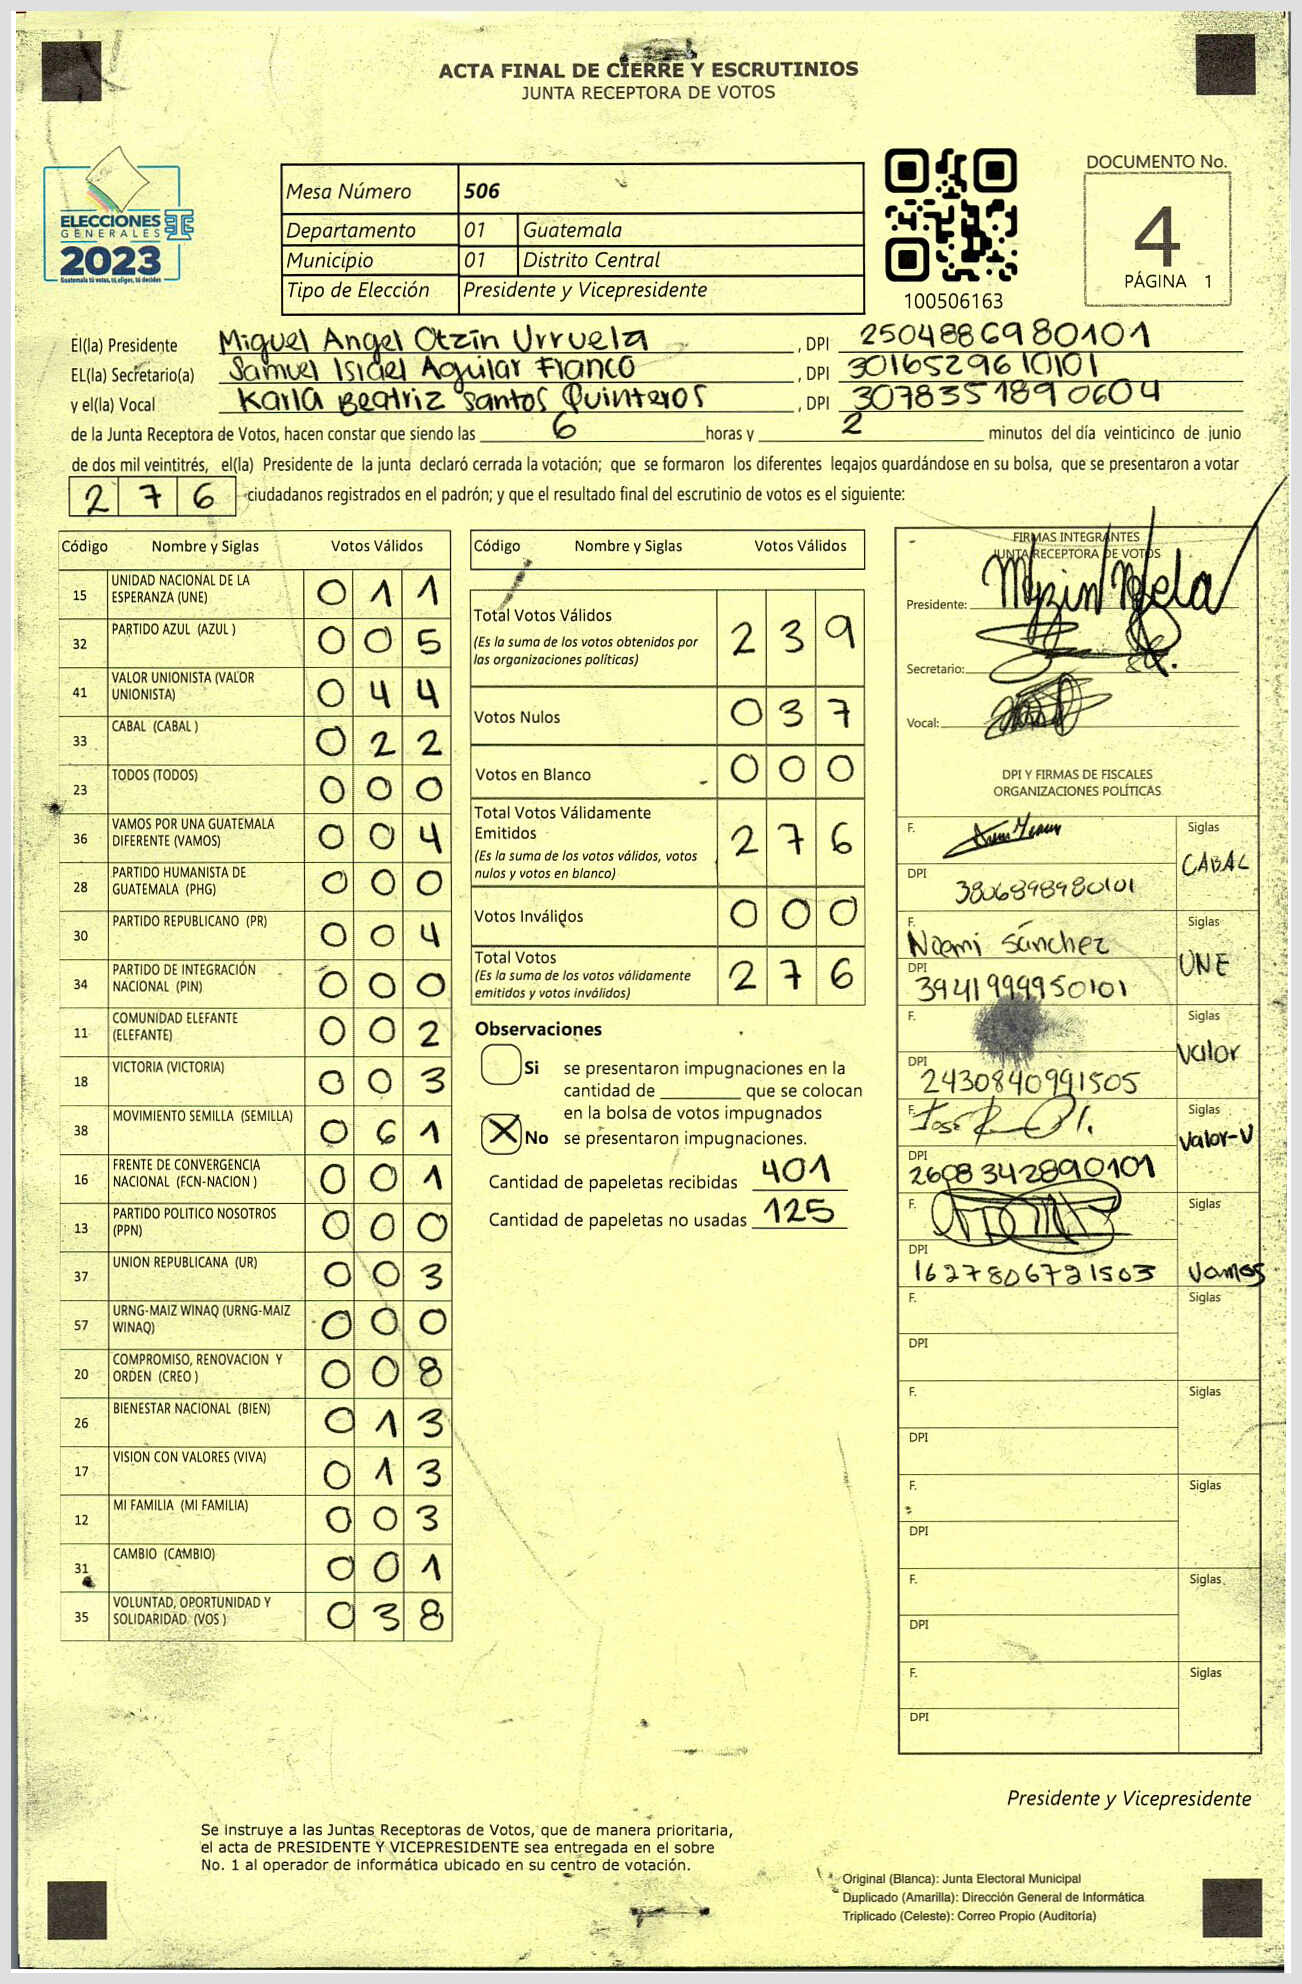 ACTA FINAL DE CIERRE Y ESCRUTINIOS
JUNTA RECEPTORA DE VOTOS
ELECCIONES
GENERALES
2023
Guatemala tú votas, tú eliges, tú decides
Mesa Número 506
Departamento 01 Guatemala
Municipio 01 Distrito Central
Tipo de Elección Presidente y Vicepresidente
100506163
DOCUMENTO No.
4
PÁGINA 1
El(la) Presidente Miguel Angel Otzin Urruela, DPI 2504886980101
EL(la) Secretario(a) Samuel Isidel Aguilar Franco, DPI 3016529610101
y el(la) Vocal Karla Beatriz Santos Quinteros, DPI 3078351890604
de la Junta Receptora de Votos, hacen constar que siendo las 6 horas y 2 minutos del día veinticinco de junio
de dos mil veintitrés, el(la) Presidente de la junta declaró cerrada la votación; que se formaron los diferentes legajos guardándose en su bolsa, que se presentaron a votar
276 ciudadanos registrados en el padrón; y que el resultado final del escrutinio de votos es el siguiente:
Código Nombre y Siglas Votos Válidos
15 UNIDAD NACIONAL DE LA ESPERANZA (UNE) 011
32 PARTIDO AZUL (AZUL ) 005
41 VALOR UNIONISTA (VALOR UNIONISTA) 044
33 CABAL (CABAL ) 022
23 TODOS (TODOS) 000
36 VAMOS POR UNA GUATEMALA DIFERENTE (VAMOS) 004
28 PARTIDO HUMANISTA DE GUATEMALA (PHG) 000
30 PARTIDO REPUBLICANO (PR) 004
34 PARTIDO DE INTEGRACIÓN NACIONAL (PIN) 000
11 COMUNIDAD ELEFANTE (ELEFANTE) 002
18 VICTORIA (VICTORIA) 003
38 MOVIMIENTO SEMILLA (SEMILLA) 061
16 FRENTE DE CONVERGENCIA NACIONAL (FCN-NACION ) 001
13 PARTIDO POLITICO NOSOTROS (PPN) 000
37 UNION REPUBLICANA (UR) 003
57 URNG-MAIZ WINAQ (URNG-MAIZ WINAQ) 000
20 COMPROMISO, RENOVACION Y ORDEN (CREO ) 008
26 BIENESTAR NACIONAL (BIEN) 013
17 VISION CON VALORES (VIVA) 013
12 MI FAMILIA (MI FAMILIA) 003
31 CAMBIO (CAMBIO) 001
35 VOLUNTAD, OPORTUNIDAD Y SOLIDARIDAD (VOS ) 038
Código Nombre y Siglas Votos Válidos
Total Votos Válidos 239
(Es la suma de los votos obtenidos por
las organizaciones políticas)
Votos Nulos 037
Votos en Blanco 000
Total Votos Válidamente
Emitidos 276
(Es la suma de los votos válidos, votos
nulos y votos en blanco)
Votos Inválidos 000
Total Votos 276
(Es la suma de los votos válidamente
emitidos y votos inválidos)
Observaciones
Si se presentaron impugnaciones en la
cantidad de ________ que se colocan
en la bolsa de votos impugnados
X No se presentaron impugnaciones.
Cantidad de papeletas recibidas 401
Cantidad de papeletas no usadas 125
FIRMAS INTEGRANTES
JUNTA RECEPTORA DE VOTOS
Presidente:
Secretario:
Vocal:
DPI Y FIRMAS DE FISCALES
ORGANIZACIONES POLÍTICAS
F. Siglas CABAL
DPI 3806898980101
F. Noemi Sánchez Siglas UNE
DPI 3941999950101
F. Siglas Valor
DPI 2430840991505
F. José Siglas Valor-U
DPI 2608342890101
F. Siglas Vamos
DPI 1627806721503
F. Siglas
DPI
F. Siglas
DPI
F. Siglas
DPI
F. Siglas
DPI
F. Siglas
DPI
Presidente y Vicepresidente
Se instruye a las Juntas Receptoras de Votos, que de manera prioritaria,
el acta de PRESIDENTE Y VICEPRESIDENTE sea entregada en el sobre
No. 1 al operador de informática ubicado en su centro de votación.
Original (Blanca): Junta Electoral Municipal
Duplicado (Amarilla): Dirección General de Informática
Triplicado (Celeste): Correo Propio (Auditoría)